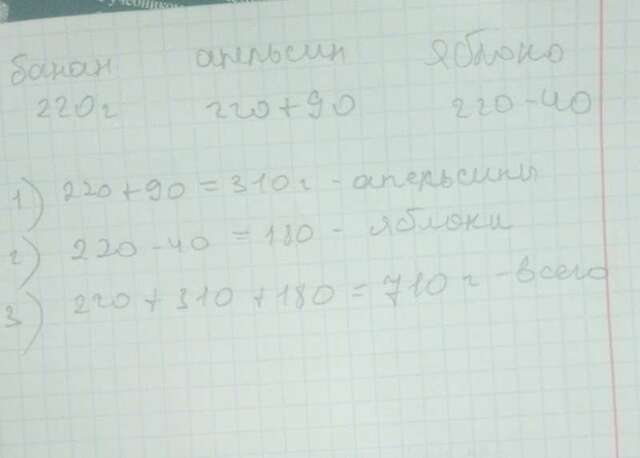 банан апельсин яблоко
220г 220+90 220-40
1) 220+90=310г - апельсины
2) 220-40=180 - яблоки
3) 220+310+180=710г - всего